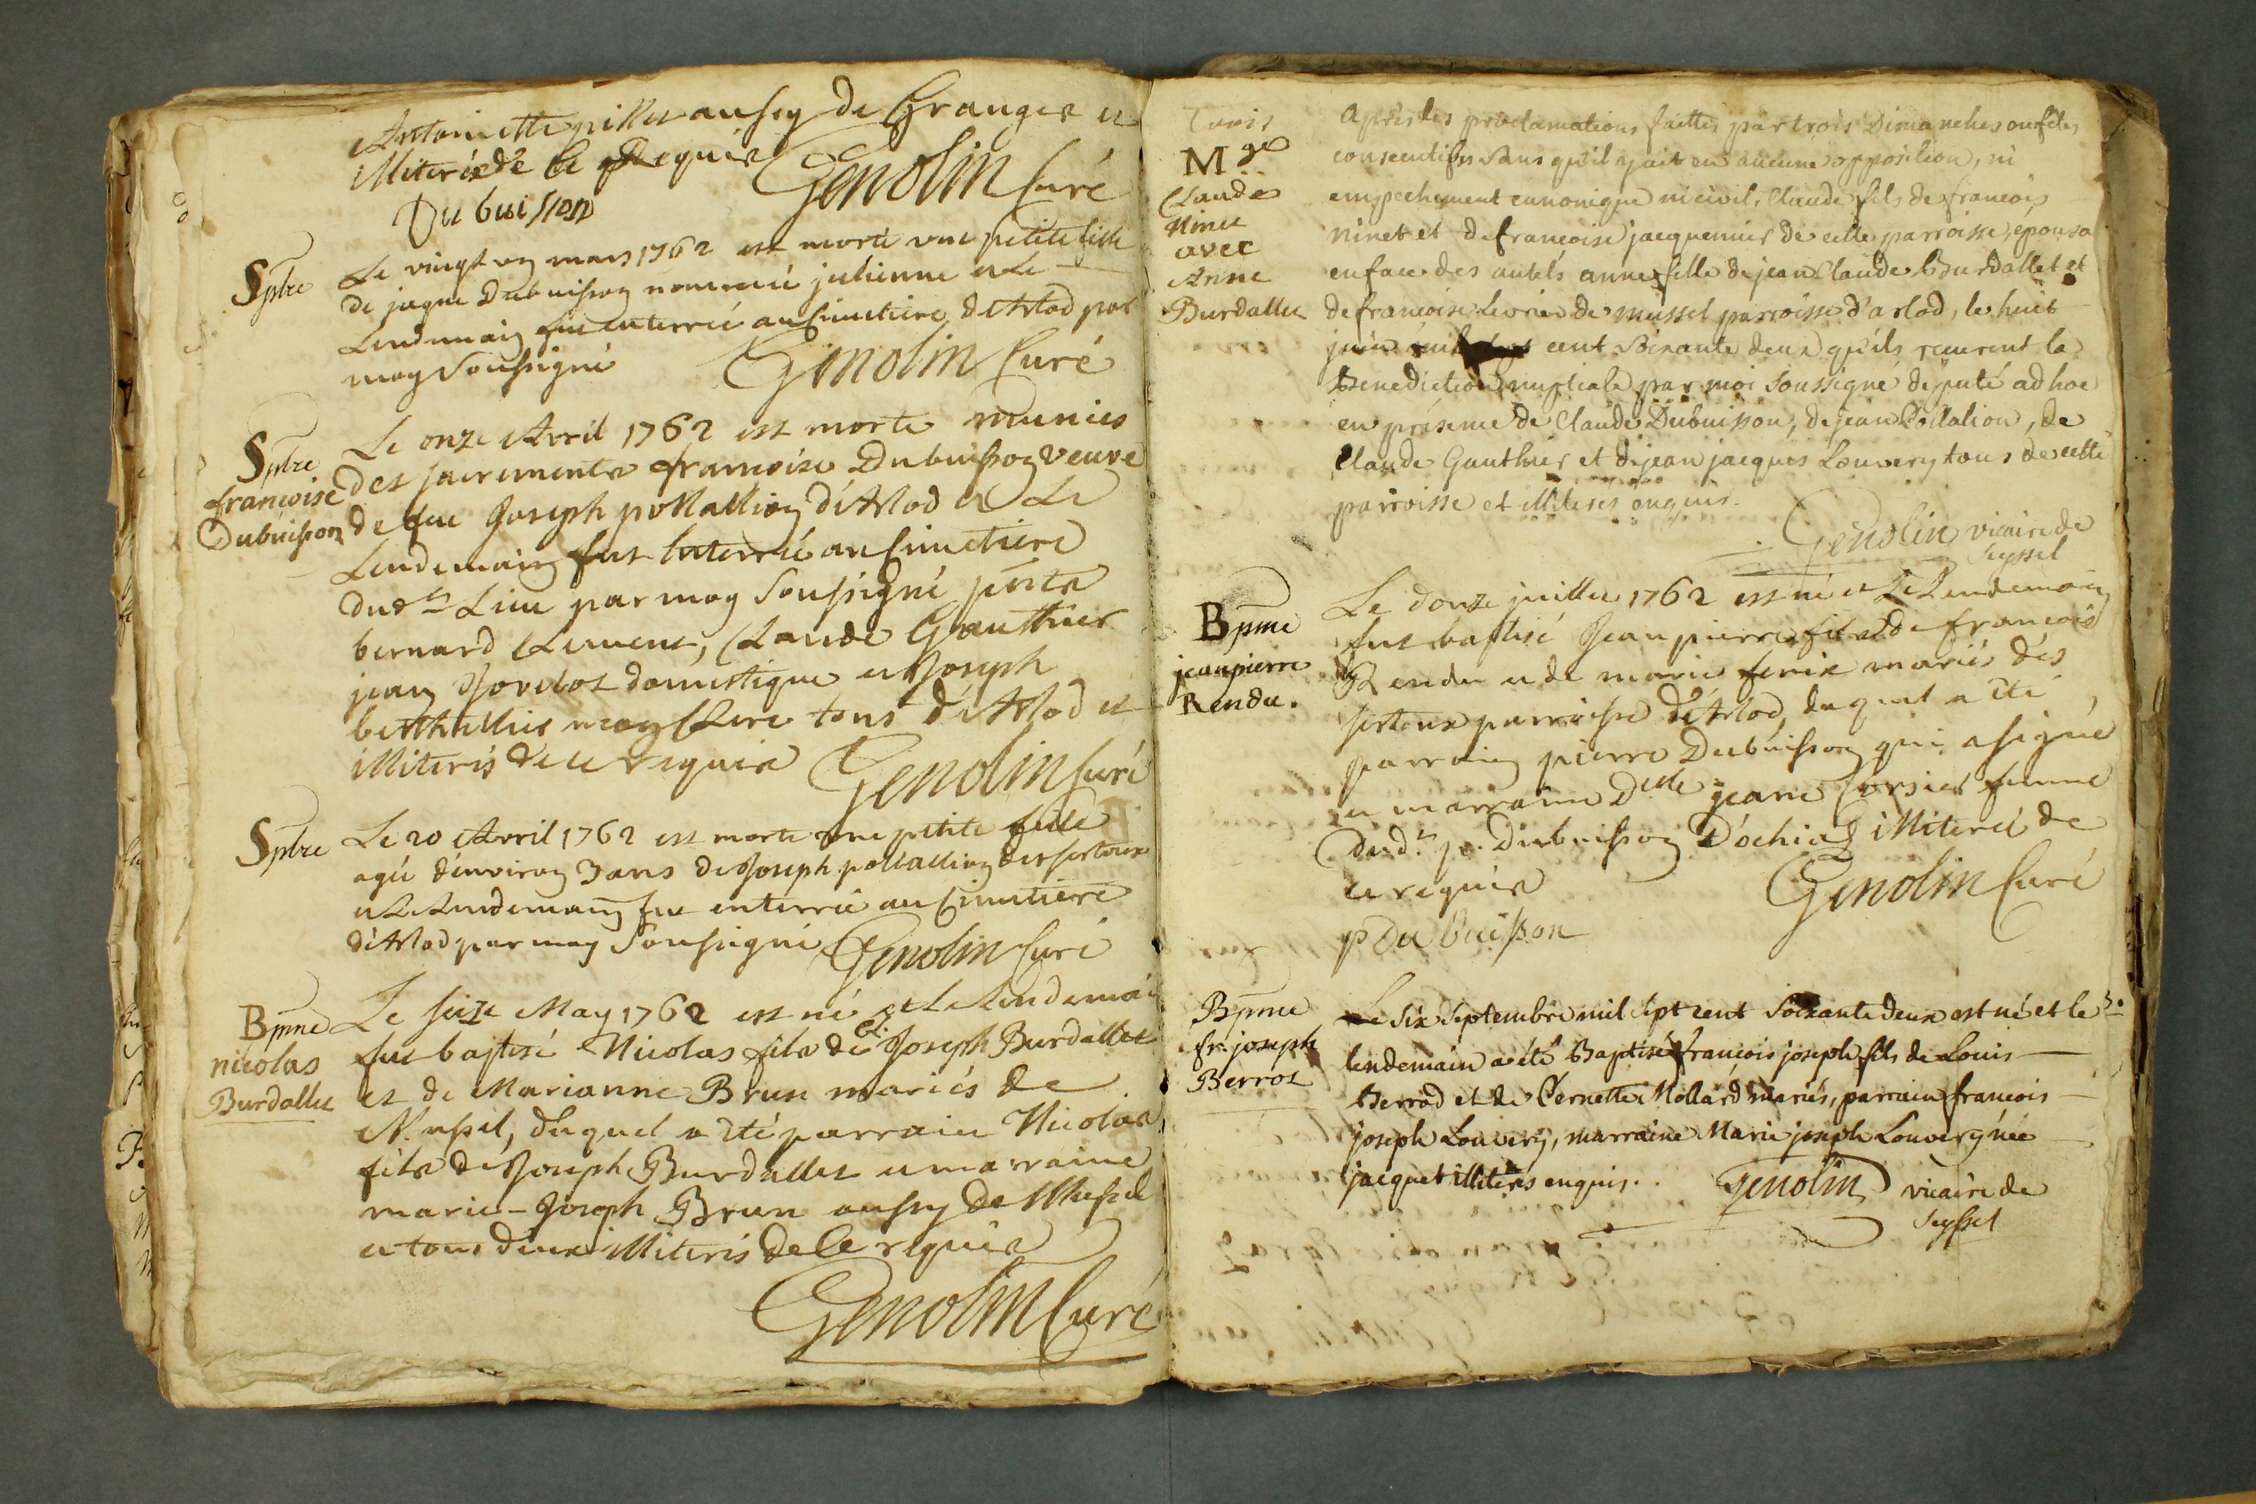 Antoinette pillet aussy de Granges et
illiterés de ce Requis Genolin Curé
Du buisson
Spbre
Le vingt un mars 1762 est morte une petite fille
de jaque Dubuisson nommeé julienne et Le
Lendemain fut enterreé au Cimetiere d'Arlod par
moy Soussigné Genolin Curé
Spbre
francoise
Dubuisson
Le onze Avril 1762 est morte munies
des sacrements francoise Dubuisson veuve
de feu Joseph pollallion d'Arlod et Le
Lendemain fut Enterreé au Cimetiere
dud.t Lieu par moy Soussigné pñts
bernard Clement, Claude Gauthier
jean domestique et Joseph
berthellier mon Clerc tous d'Arlod et
illiterés de ce requis Genolin Curé
Spbre
Le 20 Avril 1762 est morte une petite fille
ageé d'environ 3 ans de Joseph pollallion des sertoux
et Le Lendemain fut enterreé au Cimetiere
d'Arlod par moy Soussigné Genolin Curé
Bpme
nicolas
Burdallet
Le seize May 1762 est né et Le Lendemain
fut baptisé Nicolas fils de Cl. Joseph Burdallet
et de Marianne Brun mariés de
Mussel, duquel a été parrain Nicolas
fils de Joseph Burdallet et marraine
marie-Joseph Brun aussy de Mussel
et tous deux illiterés de ce requis
Genolin Curé
M.ge
Claude
Ninet
avec
Anne
Burdallet
Après les proclamations faittes par trois Dimanches ou fêtes
consecutifs sans qu'il ÿ ait eu aucune opposition, ni
empechement canonique ni civil, Claude fils de francois
ninet et de francoise jacquemier de cette parroisse, épousa
en face des autels anne fille de jean Claude Burdallet et
de francoise levrier de mussel parroisse d'arlod, le huit
juin cent soixante deux qu'ils reçurent la
Benediction nuptiale par moi soussigné deputé ad hoc
en presence de Claude Dubuisson, de jean Pollalion, de
Claude Gauthier et de jean jacques Louvery tous de cette
parroisse et illiterés enquis.
Genolin vicaire de
Seyssel
Bpme
jean pierre
Rendu.
Le douze juillet 1762 est né et Le Lendemain
fut baptisé Jean pierre fils de francois
Rendu et de marie fenix mariés des
sertoux parroisse d'Arlod, duquel a été
parrain pierre Dubuisson qui a signé
et marraine D.elle jeane Corsier femme
dud.t p. Dubuisson D'ochiaz illitereé de
ce requis Genolin Curé
p Du buisson
Bpme
fr. joseph
Berrot
Le Six Septembre mil Sept cent Soixante deux est né et le
lendemain a été Baptisé francois joseph fils de Louis
Berrod et de Pernette Mollard mariés, parrain francois
joseph Louvery, marraine Marie joseph Louvery née
jacquet illiterés enquis. Genolin vicaire de
Seyssel